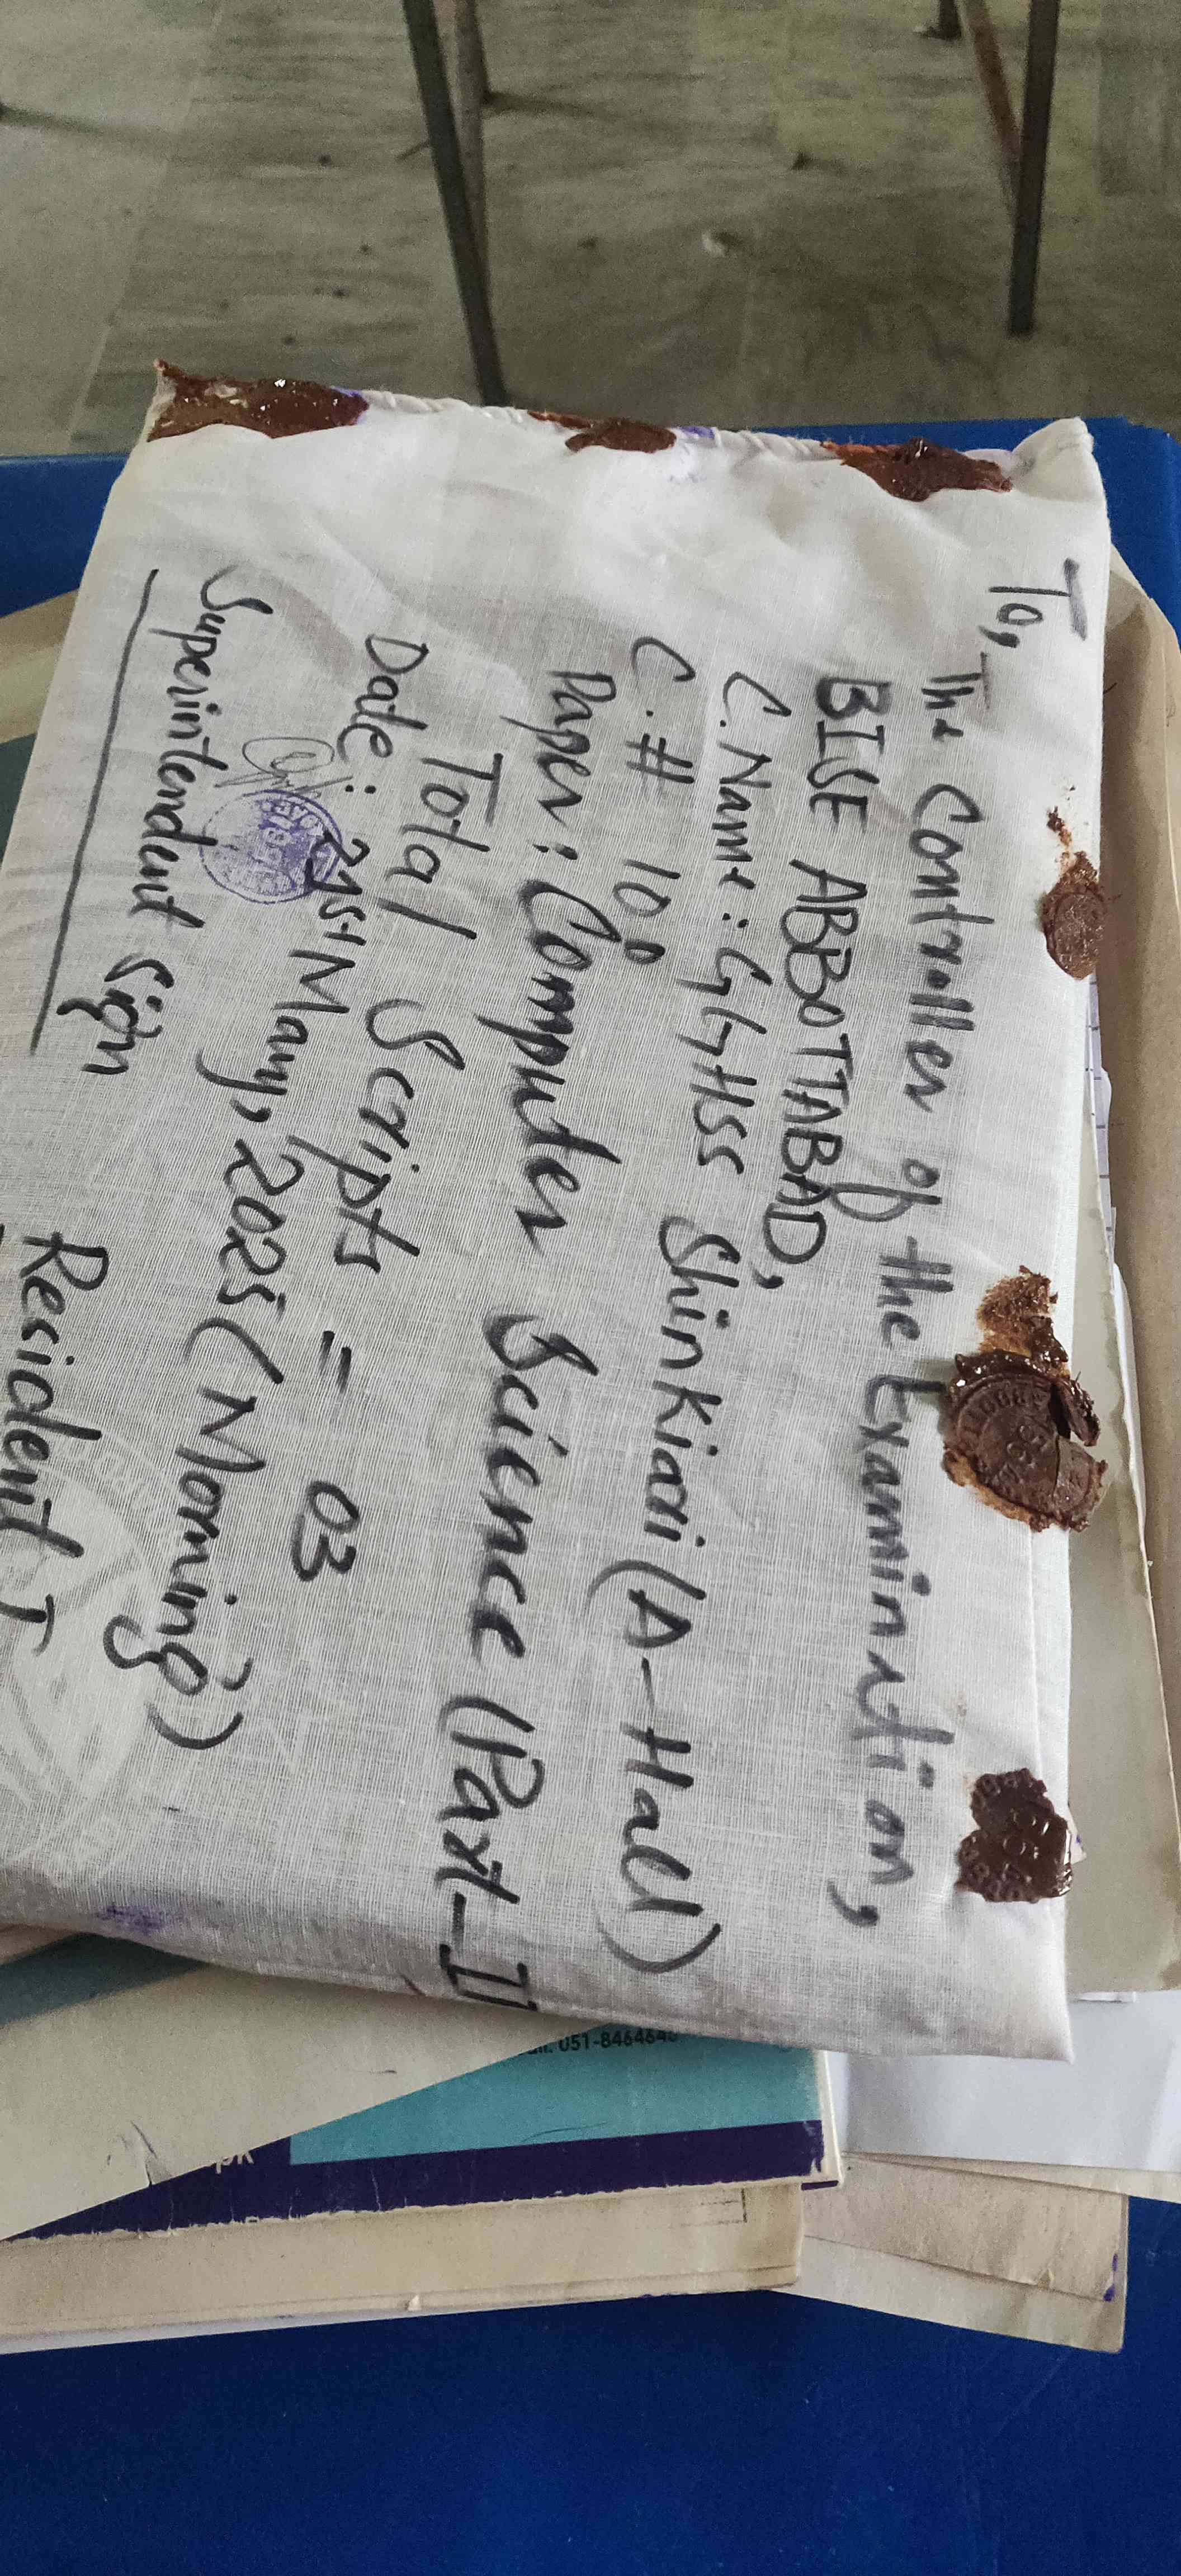 To,
The Controller of the Examination,
BISE ABBOTTABAD,
C.Name: GGHSS Shinkiari (A-Hall)
C.# 100
Paper: Computer Science (Part-II
Total Scripts = 03
Date: May, 2025 (Morning)
Superintendent Sign
Resident I
051-846464
pk